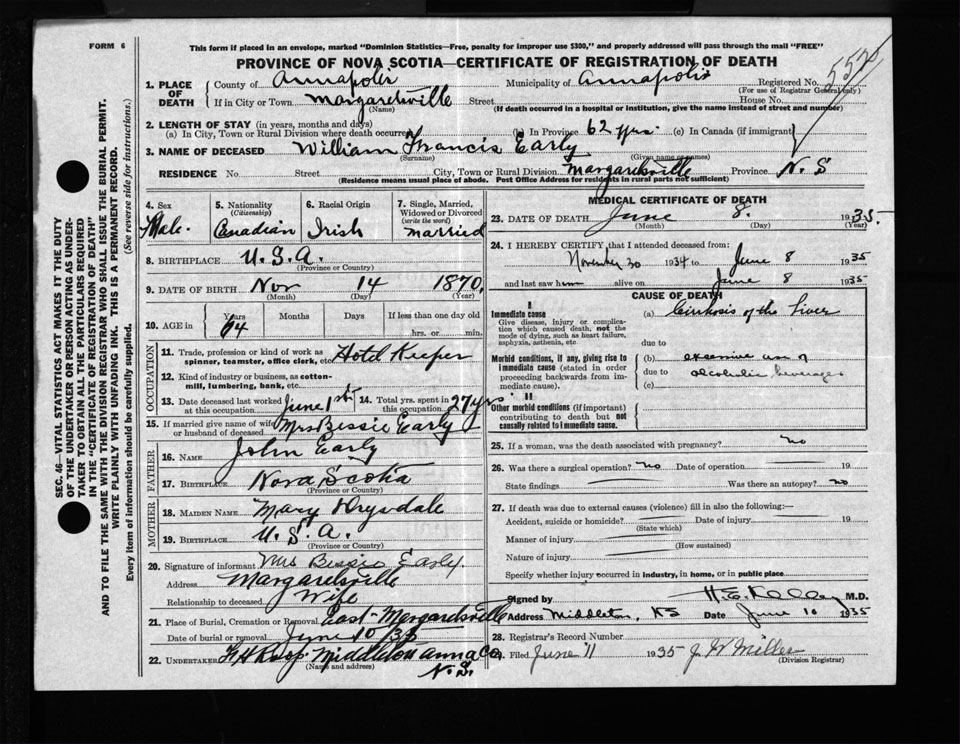 FORM 6
This form if placed in an envelope, marked "Dominion Statistics—Free, penalty for improper use $300," and properly addressed will pass through the mail "FREE"
PROVINCE OF NOVA SCOTIA—CERTIFICATE OF REGISTRATION OF DEATH
5520
1. PLACE OF DEATH County of Annapolis Municipality of Annapolis Registered No.
(For use of Registrar General only)
If in City or Town Margaretsville Street House No.
(Name) (If death occurred in a hospital or institution, give the name instead of street and number)
2. LENGTH OF STAY (in years, months and days)
(a) In City, Town or Rural Division where death occurred (b) In Province 62 yrs. (c) In Canada (if immigrant)
3. NAME OF DECEASED William Francis Early
(Surname) (Given name or names)
RESIDENCE No. Street City, Town or Rural Division Margaretsville Province N. S
(Residence means usual place of abode. Post Office Address for residents in rural parts not sufficient)
4. Sex Male.
5. Nationality (Citizenship) Canadian
6. Racial Origin Irish
7. Single, Married, Widowed or Divorced (write the word) married
8. BIRTHPLACE U. S. A.
(Province or Country)
9. DATE OF BIRTH Nov 14 1870,
(Month) (Day) (Year)
10. AGE in Years Months Days If less than one day old
64 hrs. or min.
OCCUPATION
11. Trade, profession or kind of work as spinner, teamster, office clerk, etc. Hotel Keeper
12. Kind of industry or business, as cotton-mill, lumbering, bank, etc.
13. Date deceased last worked at this occupation June 1st
14. Total yrs. spent in this occupation 27 yrs
15. If married give name of wife or husband of deceased Mrs Bessie Early
FATHER
16. NAME John Early
17. BIRTHPLACE Nova Scotia
(Province or Country)
MOTHER
18. MAIDEN NAME Mary Drysdale
19. BIRTHPLACE U. S. A.
(Province or Country)
20. Signature of informant Mrs Bessie Early.
Address Margaretsville
Relationship to deceased Wife
21. Place of Burial, Cremation or Removal East-Margaretsville
Date of burial or removal June 10/35
22. UNDERTAKER Middleton Anna Co
(Name and address) N. S.
MEDICAL CERTIFICATE OF DEATH
23. DATE OF DEATH June 8. 1935.
(Month) (Day) (Year)
24. I HEREBY CERTIFY that I attended deceased from:
November 30 1934 to June 8 1935
and last saw him alive on June 8 1935
CAUSE OF DEATH
I
Immediate cause
Give disease, injury or complication which caused death, not the mode of dying, such as heart failure, asphyxia, asthenia, etc
(a) Cirrhosis of the Liver
due to
Morbid conditions, if any, giving rise to immediate cause (stated in order proceeding backwards from immediate cause).
(b) excessive use of
due to alcoholic beverages
(c)
II
Other morbid conditions (if important) contributing to death but not causally related to immediate cause.
25. If a woman, was the death associated with pregnancy? no
26. Was there a surgical operation? no Date of operation 19
State findings Was there an autopsy? no
27. If death was due to external causes (violence) fill in also the following:—
Accident, suicide or homicide? Date of injury 19
(State which)
Manner of injury
(How sustained)
Nature of injury
Specify whether injury occurred in industry, in home, or in public place
Signed by M.D.
Address Middleton, NS Date June 10 1935
28. Registrar's Record Number
29. Filed June 11 1935 J. W Miller
(Division Registrar)
SEC. 46—VITAL STATISTICS ACT MAKES IT THE DUTY
OF THE UNDERTAKER OR PERSON ACTING AS UNDER-
TAKER TO OBTAIN ALL THE PARTICULARS REQUIRED
IN THE "CERTIFICATE OF REGISTRATION OF DEATH"
AND TO FILE THE SAME WITH THE DIVISION REGISTRAR WHO SHALL ISSUE THE BURIAL PERMIT.
WRITE PLAINLY WITH UNFADING INK. THIS IS A PERMANENT RECORD.
Every item of information should be carefully supplied. (See reverse side for instructions.)